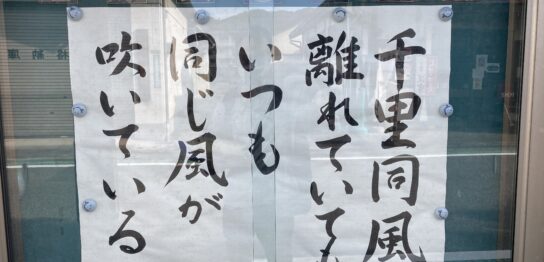 千里同風
離れていても
いつも
同じ風が
吹いている